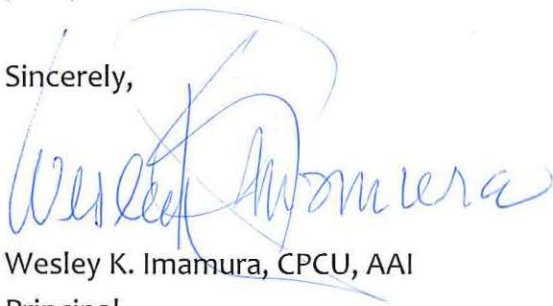 Sincerely,
Wesley K Imamura
Wesley K. Imamura, CPCU, AAI
Principal